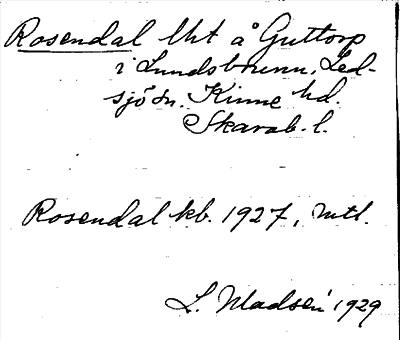 Rosendal lht å Guttorp
i Lundsbrunn, Led-
sjö sn. Kinne hd.
Skarab. l.
Rosendal kb. 1927, mtl.
L. Madsén 1929